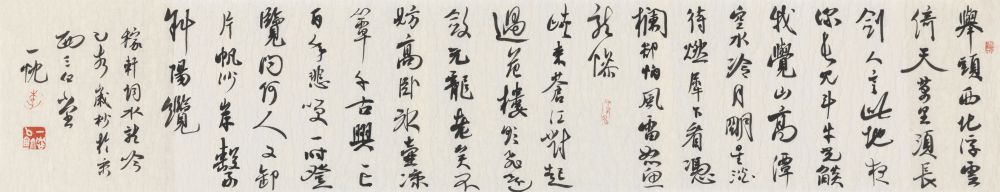 舉頭西北浮雲
倚天萬里須長
劍人言此地夜
深長見斗牛光燄
我覺山高潭
空水冷月明星淡
待燃犀下看憑
欄卻怕風雷怒魚
龍慘
峽束蒼江對起
過危樓欲飛還
斂元龍老矣不
妨高臥冰壺涼
簟千古興亡
百年悲笑一時登
覽問何人又卸
片帆沙岸繫
斜陽纜
稼軒詞水龍吟
乙未歲杪於京
西三仁堂
一